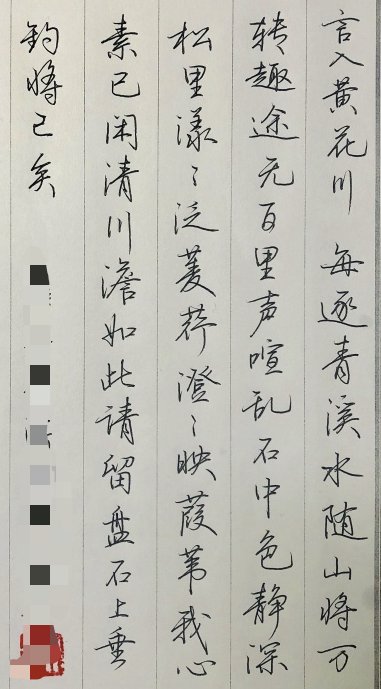 言入黄花川 每逐青溪水随山将万
转趣途无百里声喧乱石中色静深
松里漾〻泛菱荇澄〻映葭苇我心
素已闲清川澹如此请留盘石上垂
钓将已矣